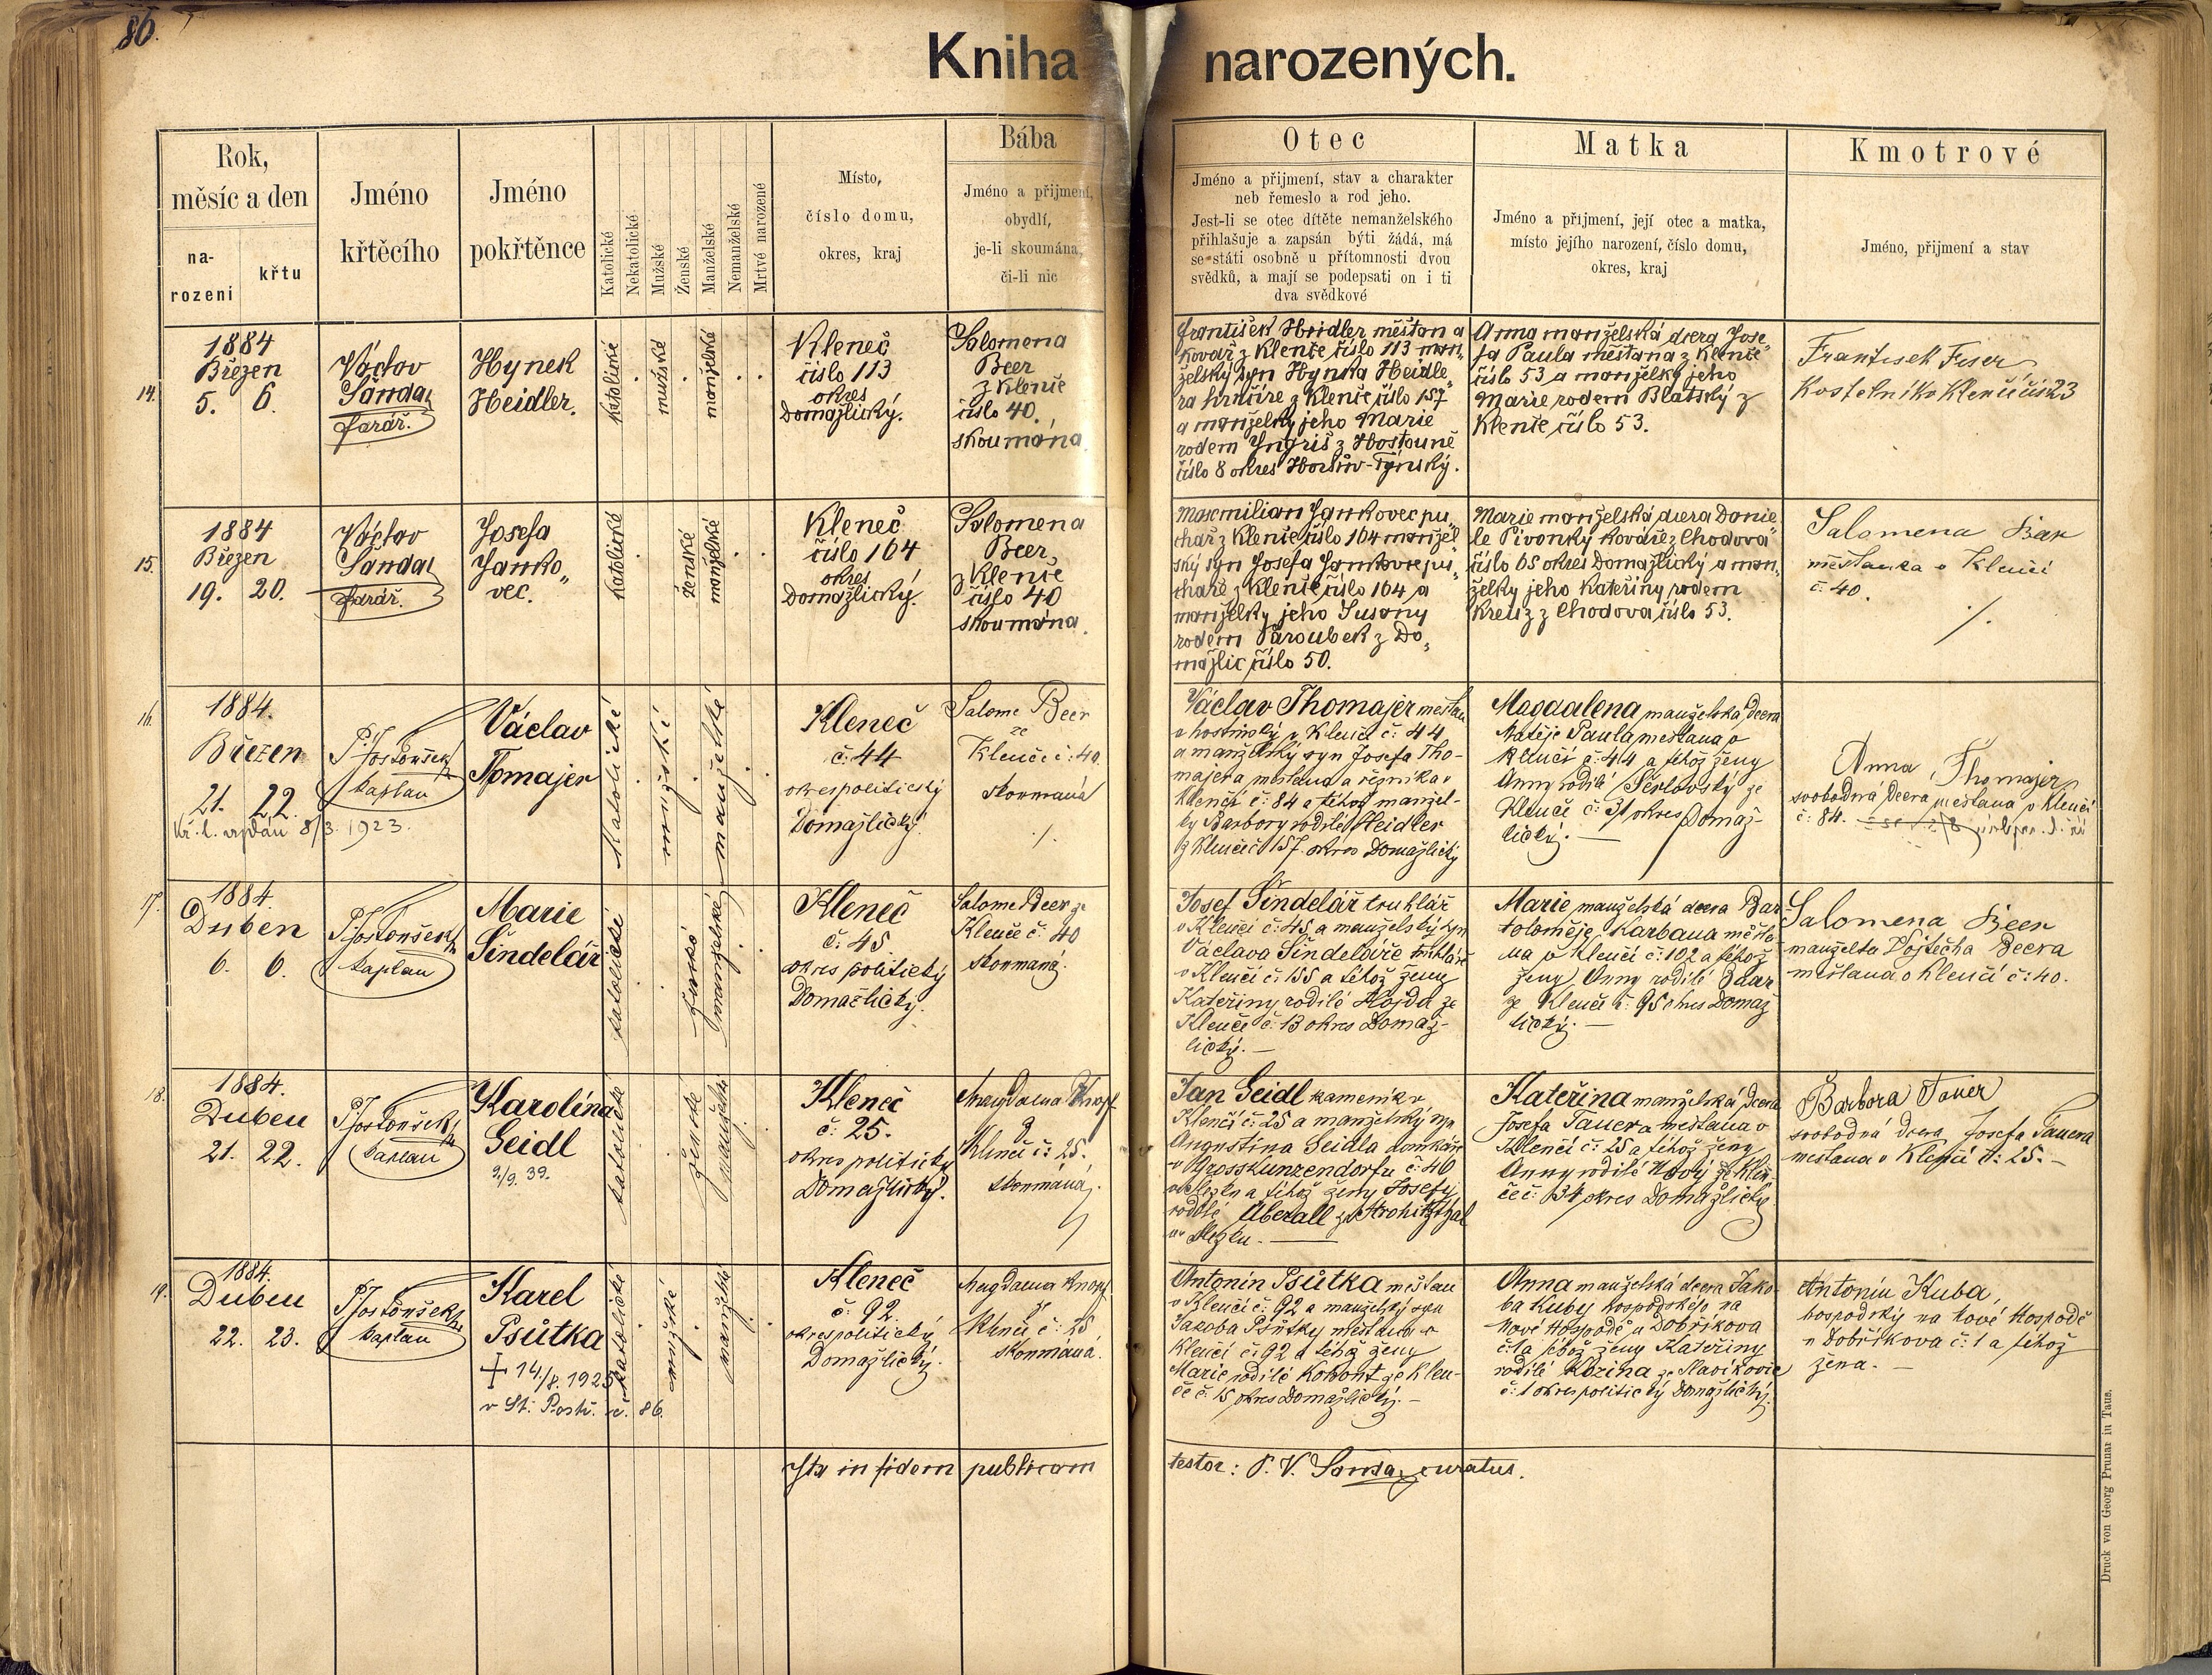 86.
Kniha narozených.
Rok,
měsíc a den
na-
rození
křtu
Jméno
křtěcího
Jméno
pokřtěnce
Katolické
Nekatolické
Mužské
Ženské
Manželské
Nemanželské
Mrtvé narozené
Místo,
číslo domu,
okres, kraj
Bába
Jméno a přijmení,
obydlí,
je-li skoumána,
či-li nic
Otec
Jméno a přijmení, stav a charakter
neb řemeslo a rod jeho.
Jest-li se otec dítěte nemanželského
přihlašuje a zapsán býti žádá, má
se státi osobně u přítomnosti dvou
svědků, a mají se podepsati on i ti
dva svědkové
Matka
Jméno a přijmení, její otec a matka,
místo jejího narození, číslo domu,
okres, kraj
Kmotrové
Jméno, přijmení a stav
14.
1884
Březen
5. 6.
Václav
Šanda,
farář.
Hynek
Heidler.
katolické
mužské
manželské
Kleneč
číslo 113
okres
Domažlický.
Salomena
Beer
z Klenče
číslo 40.
skoumána
František Heidler měšťan a
kovář z Klenče číslo 113 man„
želský syn Hynka Heidle„
ra hrnčíře z Klenče číslo 157
a manželky jeho Marie
rodem Yngriš z Hostouně
číslo 8 okres Horšův-Týnský.
Anna manželská dcera Jose„
fa Paula měšťana z Klenče
číslo 53 a manželky jeho
Marie rodem Blatský z
Klenče číslo 53.
František Fiser
Kostelník v Klenčí čís 23
15.
1884
Březen
19. 20.
Václav
Šanda,
farář.
Josefa
Janko„
vec.
katolické
ženské
manželské
Kleneč
číslo 164
okres
Domažlický.
Salomena
Beer,
z Klenče
číslo 40
skoumána.
Maxmilian Jankovec pu„
chař z Klenče číslo 164 manžel„
ský syn Josefa Jankovce pu„
chaře z Klenče číslo 164 a
manželky jeho Susany
rodem Paroubek z Do„
mažlic číslo 50.
Marie manželská dcera Danie„
le Pivonky kováře z Chodova
číslo 65 okres Domažlický a man„
želky jeho Kateřiny rodem
Kreuz z Chodova číslo 53.
Salomena Bar
měšťanka v Klenčí
č: 40.
16.
1884.
Březen
21. 22.
Kř. l. vydán 8/3. 1923.
P. Jos Toušek
kaplan
Václav
Tomajer
Katolické
mužské
manželské
Kleneč
č: 44
okres politický
Domažlický.
Salome Beer
ze
Klenčí č: 40.
skoumaná
Václav Thomajer měšťan
a hostinský v Klenčí č: 44
a manželský syn Josefa Tho-
majera měšťana a řezníka v
Klenčí č: 84 a téhož manžel-
ky Barbory rodilé Heidler
z Klenče č 157 okres Domažlický
Magdalena manželská dcera
Matěje Paula měšťana v
Klenčí č: 44 a téhož ženy
Anny rodilé Šerlovský ze
Klenče č: 31 okres Domaž-
lický. —
Anna Thomajer
svobodná dcera měšťana v Klenčí
č: 84.
17.
1884.
Duben
6. 6.
P. Jos Toušek
kaplan
Marie
Šindelář
katolické
ženské
manželské
Kleneč
č: 45
okres politický
Domažlický.
Salome Beer ze
Klenče č: 40
skoumaná.
Josef Šindelář truhlář
v Klenčí č: 45 a manželský syn
Václava Šindeláře truhláře
v Klenčí č: 155 a téhož ženy
Kateřiny rodilé Hojda ze
Klenče č: 13 okres Domaž-
lický. —
Marie manželská dcera Bar-
toloměje Karbana měšťa-
na v Klenčí č: 102 a téhož
ženy Anny rodilé Baar
ze Klenče č: 95 okres Domaž
lický. —
Salomena Beer
manželka Vojtěcha Beera
měšťana v Klenčí č: 40.
18.
1884.
Duben
21. 22.
P. Jos Toušek
kaplan
Karolína
Seidl
2/9. 39.
katolické
ženské
manželské
Kleneč
č: 25.
okres politický
Domažlický.
Magdalena Knopf
z
Klenčí č: 25.
skoumáná.
Jan Seidl kameník v
Klenčí č: 25 a manželský syn
Augustina Seidla domkáře
v Grosskunzendorfu č: 46
ve Slezku a téhož ženy Josefy
rodilé Überall ze Strohitzthal
ve Slezku. —
Kateřina manželská dcera
Josefa Tauera měšťana v
Klenčí č: 25 a téhož ženy
Anny rodilé Nový ze Klen-
če č: 134 okres Domažlický
Barbora Tauer
svobodná dcera Josefa Tauera
měšťana v Klenčí č: 25. —
19.
1884.
Duben
22. 23.
P. Jos Toušek
kaplan
Karel
Psůtka
† 14/8. 1925
v St. Postř. č. 86.
katolické
mužské
manželské
Kleneč
č: 92
okres politický
Domažlický.
Magdalena Knopf
ze
Klenče č: 25
skoumáná.
Antonín Psůtka měšťan
v Klenčí č: 92 a manželský syn
Jakoba Psůtky měšťana v
Klenčí č: 92 a téhož ženy
Marie rodilé Kohout ze Klen-
če č: 15 okres Domažlický. —
Anna manželská dcera Jako-
ba Kuby hospodského na
Nové Hospodě u Dobříkova
č: 1 a téhož ženy Kateřiny
rodilé Kozina ze Slavíkovic
č: 1 okres politický Domažlický.
Antonín Kuba,
hospodský na Nové Hospodě
u Dobříkova č: 1 a téhož
žena. —
Ita in fidem publicam testor: P. V. Šanda, curatus.
Druck von Georg Prunar in Taus.